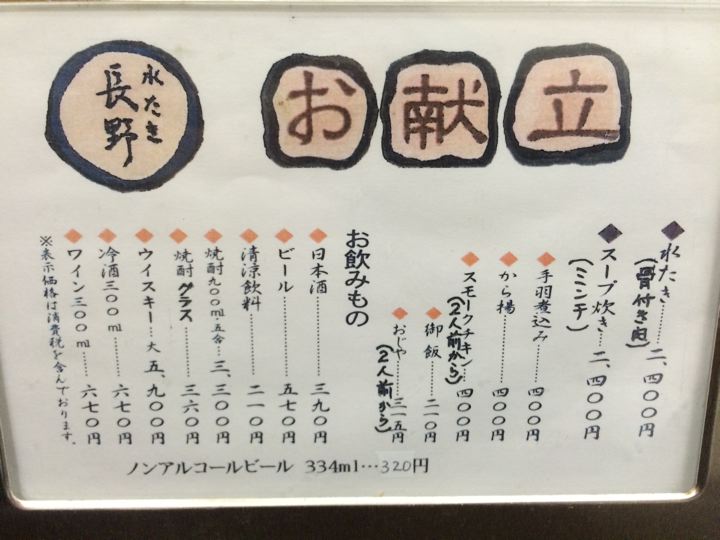 水たき
長野
お献立
水たき……二、四〇〇円
(骨付き肉)
スープ炊き…二、四〇〇円
(ミンチ)
手羽煮込み………四〇〇円
から揚………四〇〇円
スモークチキン…四〇〇円
(2人前から)
御飯………二一〇円
おじや………三一五円
(2人前から)
お飲みもの
日本酒………三九〇円
ビール………五七〇円
清涼飲料………二一〇円
焼酎九〇〇ml・五合…三、三〇〇円
焼酎グラス………三六〇円
ウイスキー…大 五、九〇〇円
冷酒三〇〇ml………六七〇円
ワイン三〇〇ml………六七〇円
※表示価格は消費税を含んでおります。
ノンアルコールビール 334ml…320円